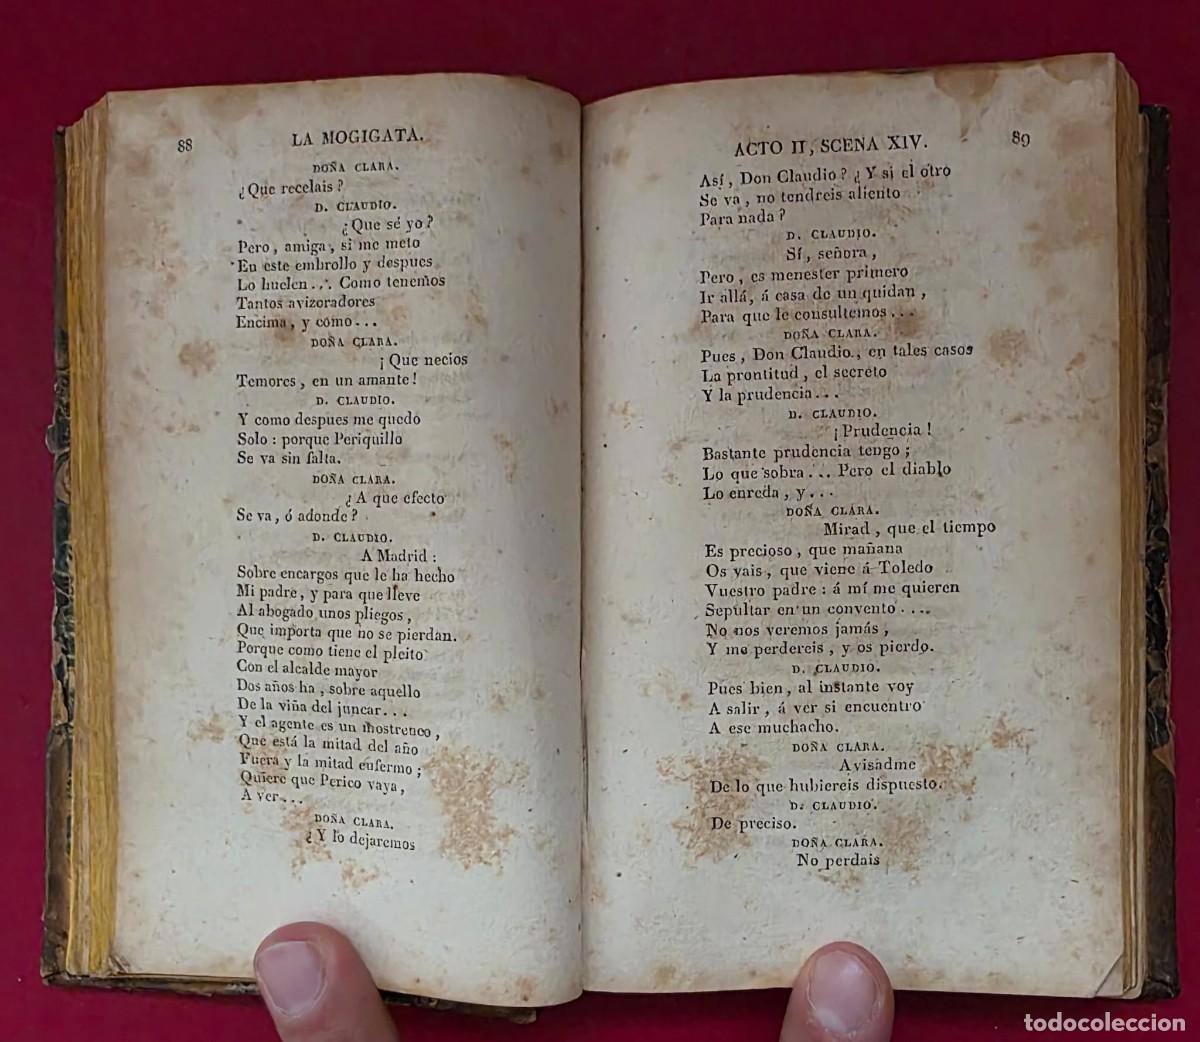 88
LA MOGIGATA.
DOÑA CLARA.
¿Que recelais?
D. CLAUDIO.
¿Que sé yo?
Pero, amiga, si me meto
En este embrollo y despues
Lo huelen... Como tenemos
Tantos avizoradores
Encima, y como...
DOÑA CLARA.
¡Que necios
Temores, en un amante!
D. CLAUDIO.
Y como despues me quedo
Solo: porque Periquillo
Se va sin falta.
DOÑA CLARA.
¿A que efecto
Se va, ó adonde?
D. CLAUDIO.
A Madrid:
Sobre encargos que le ha hecho
Mi padre, y para que lleve
Al abogado unos pliegos,
Que importa que no se pierdan.
Porque como tiene el pleito
Con el alcalde mayor
Dos años ha, sobre aquello
De la viña del juncar...
Y el agente es un mostrenco,
Que está la mitad del año
Fuera y la mitad enfermo;
Quiere que Perico vaya,
A ver...
DOÑA CLARA.
¿Y lo dejaremos
ACTO II, SCENA XIV.
89
Así, Don Claudio? ¿Y si el otro
Se va, no tendreis aliento
Para nada?
D. CLAUDIO.
Sí, señora,
Pero, es menester primero
Ir allá, á casa de un quidan,
Para que le consultemos...
DOÑA CLARA.
Pues, Don Claudio, en tales casos
La prontitud, el secreto
Y la prudencia...
D. CLAUDIO.
¡Prudencia!
Bastante prudencia tengo;
Lo que sobra... Pero el diablo
Lo enreda, y...
DOÑA CLARA.
Mirad, que el tiempo
Es precioso, que mañana
Os vais, que viene á Toledo
Vuestro padre: á mí me quieren
Sepultar en un convento....
No nos veremos jamás,
Y me perdereis, y os pierdo.
D. CLAUDIO.
Pues bien, al instante voy
A salir, á ver si encuentro
A ese muchacho.
DOÑA CLARA.
Avisadme
De lo que hubiereis dispuesto.
D. CLAUDIO.
De preciso.
DOÑA CLARA.
No perdais
todocoleccion